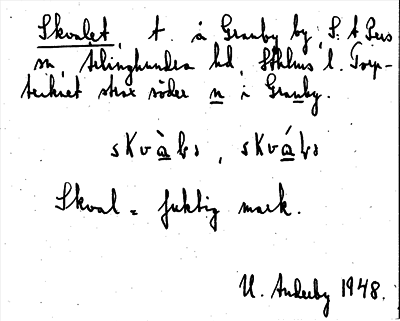 Skvalet, t. å Granby by, S:t Pers
sn, Ärlinghundra hd, Sthlms l. Torp-
tecknet strax söder n i Granby.
skvàlə, skválə
Skval = fuktig mark.
U. Anderby 1948.